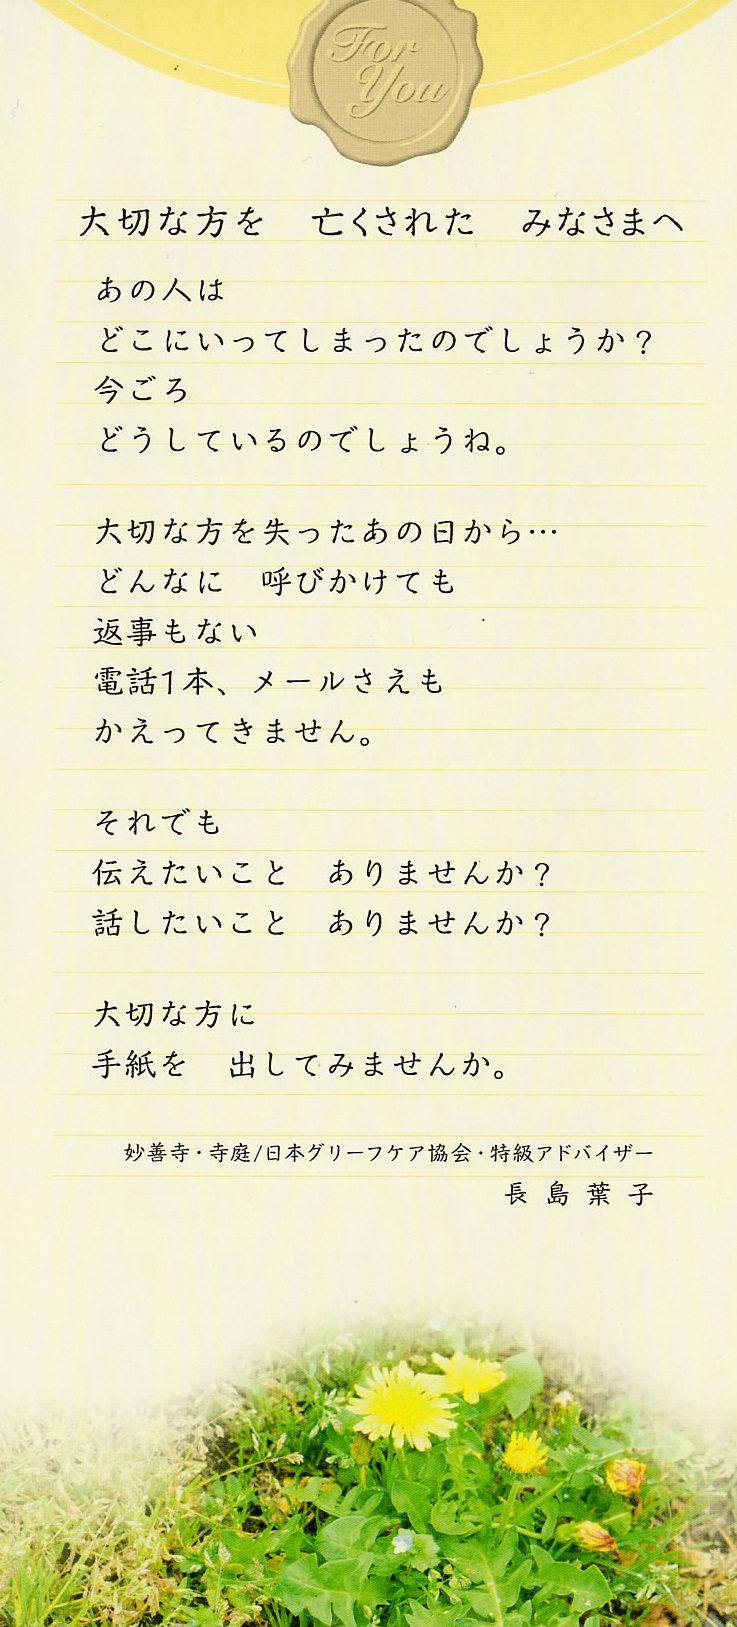 For
You
大切な方を　亡くされた　みなさまへ
あの人は
どこにいってしまったのでしょうか？
今ごろ
どうしているのでしょうね。
大切な方を失ったあの日から…
どんなに　呼びかけても
返事もない
電話1本、メールさえも
かえってきません。
それでも
伝えたいこと　ありませんか？
話したいこと　ありませんか？
大切な方に
手紙を　出してみませんか。
妙善寺・寺庭/日本グリーフケア協会・特級アドバイザー
長 島 葉 子